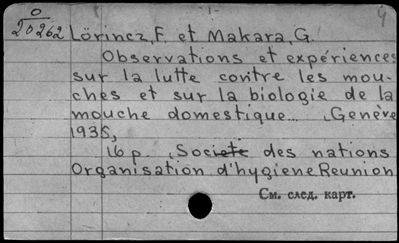 О
20262
-1-
Lörincz, F. et Makara, G.
Observations et expériences
sur la lutte contre les mou-
ches et sur la biologie de la
mouche domestique... , Genève
1935,
16 p. , Societe des nations
Organisation d'hygiene Reunion
См. след. карт.